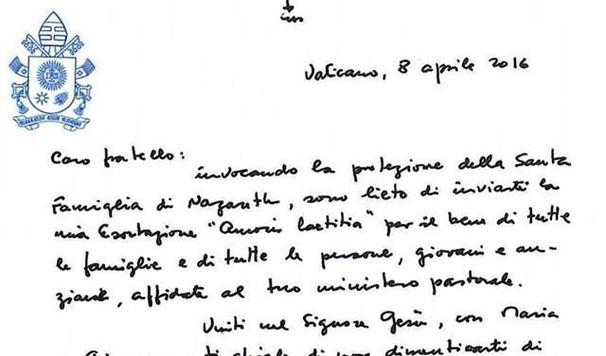 Vaticano, 8 aprile 2016
Caro fratello:
invocando la protezione della Santa
Famiglia di Nazareth, sono lieto di inviarti la
mia Esortazione "Amoris laetitia" per il bene di tutte
le famiglie e di tutte le persone, giovani e an-
ziane, affidate al tuo ministero pastorale.
Uniti nel Signore Gesù, con Maria
ti chiedo di non dimenticarti di